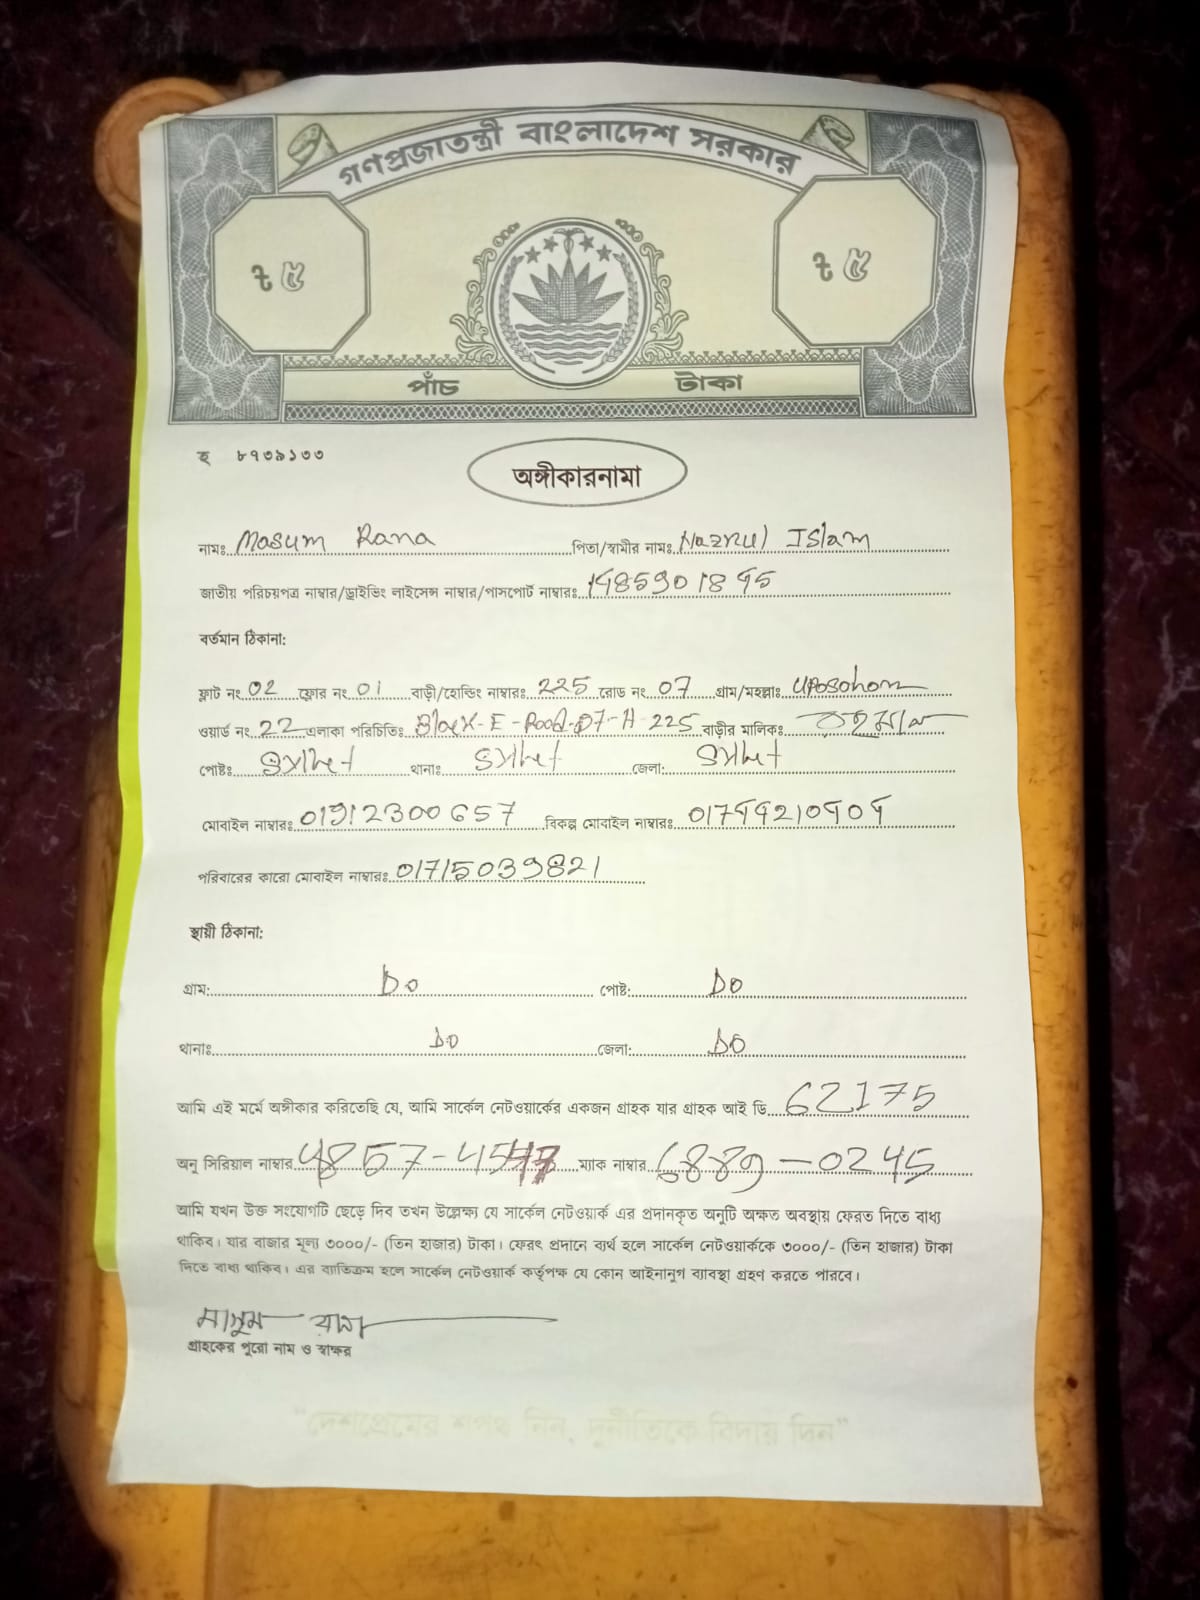 গণপ্রজাতন্ত্রী বাংলাদেশ সরকার
৳ ৫ ৳ ৫
পাঁচ টাকা
হ ৮৭৩৯১৩৩
অঙ্গীকারনামা
নামঃ Masum Rana পিতা/স্বামীর নামঃ Nazrul Islam
জাতীয় পরিচয়পত্র নাম্বার/ড্রাইভিং লাইসেন্স নাম্বার/পাসপোর্ট নাম্বারঃ
বর্তমান ঠিকানা:
ফ্লাট নং 02 ফ্লোর নং 01 বাড়ী/হোল্ডিং নাম্বারঃ 225 রোড নং 07 গ্রাম/মহল্লাঃ Uposohom
ওয়ার্ড নং 22 এলাকা পরিচিতিঃ Block-E-Road-07-H-225 বাড়ীর মালিকঃ রহমান
পোষ্টঃ Sylhet থানাঃ Sylhet জেলা: Sylhet
মোবাইল নাম্বারঃ 01912300657 বিকল্প মোবাইল নাম্বারঃ
পরিবারের কারো মোবাইল নাম্বারঃ 01715039821
স্থায়ী ঠিকানা:
গ্রাম: Do পোষ্ট: Do
থানাঃ Do জেলা: Do
আমি এই মর্মে অঙ্গীকার করিতেছি যে, আমি সার্কেল নেটওয়ার্কের একজন গ্রাহক যার গ্রাহক আই ডি 62175
অনু সিরিয়াল নাম্বার ম্যাক নাম্বার 6889-0245
আমি যখন উক্ত সংযোগটি ছেড়ে দিব তখন উল্লেক্ষ্য যে সার্কেল নেটওয়ার্ক এর প্রদানকৃত অনুটি অক্ষত অবস্থায় ফেরত দিতে বাধ্য
থাকিব। যার বাজার মূল্য ৩০০০/- (তিন হাজার) টাকা। ফেরৎ প্রদানে ব্যর্থ হলে সার্কেল নেটওয়ার্ককে ৩০০০/- (তিন হাজার) টাকা
দিতে বাধ্য থাকিব। এর ব্যতিক্রম হলে সার্কেল নেটওয়ার্ক কর্তৃপক্ষ যে কোন আইনানুগ ব্যবস্থা গ্রহণ করতে পারবে।
মাসুম রানা
গ্রাহকের পুরো নাম ও স্বাক্ষর
"দেশপ্রেমের শপথ নিন, দুর্নীতিকে বিদায় দিন"